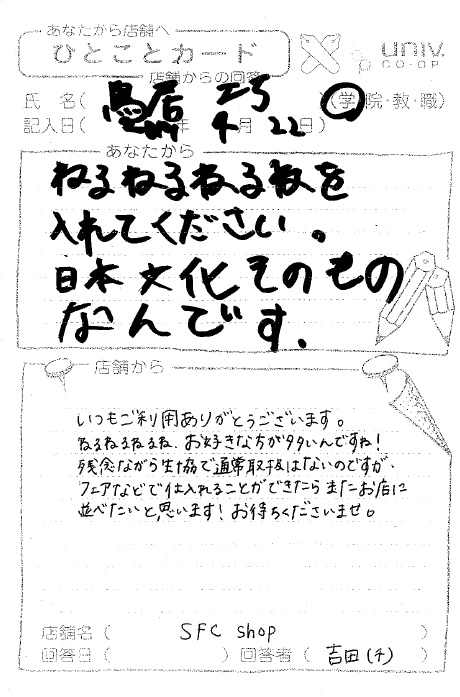 あなたから店舗へ
ひとことカード
店舗からの回答
univ.
CO-OP
氏 名( 鳥居 )(学・院・教・職)
記入日( 年 4 月 22 日)
あなたから
ねるねるねるねを
入れてください。
日本文化そのもの
なんです.
店舗から
いつもご利用ありがとうございます。
ねるねるねるね、お好きな方が多いんですね!
残念ながら生協で通常取扱はないのですが、
フェアなどで仕入れることができたらまたお店に
並べたいと思います! お待ちくださいませ。
店舗名( SFC shop )
回答日( ) 回答者( 吉田(千) )